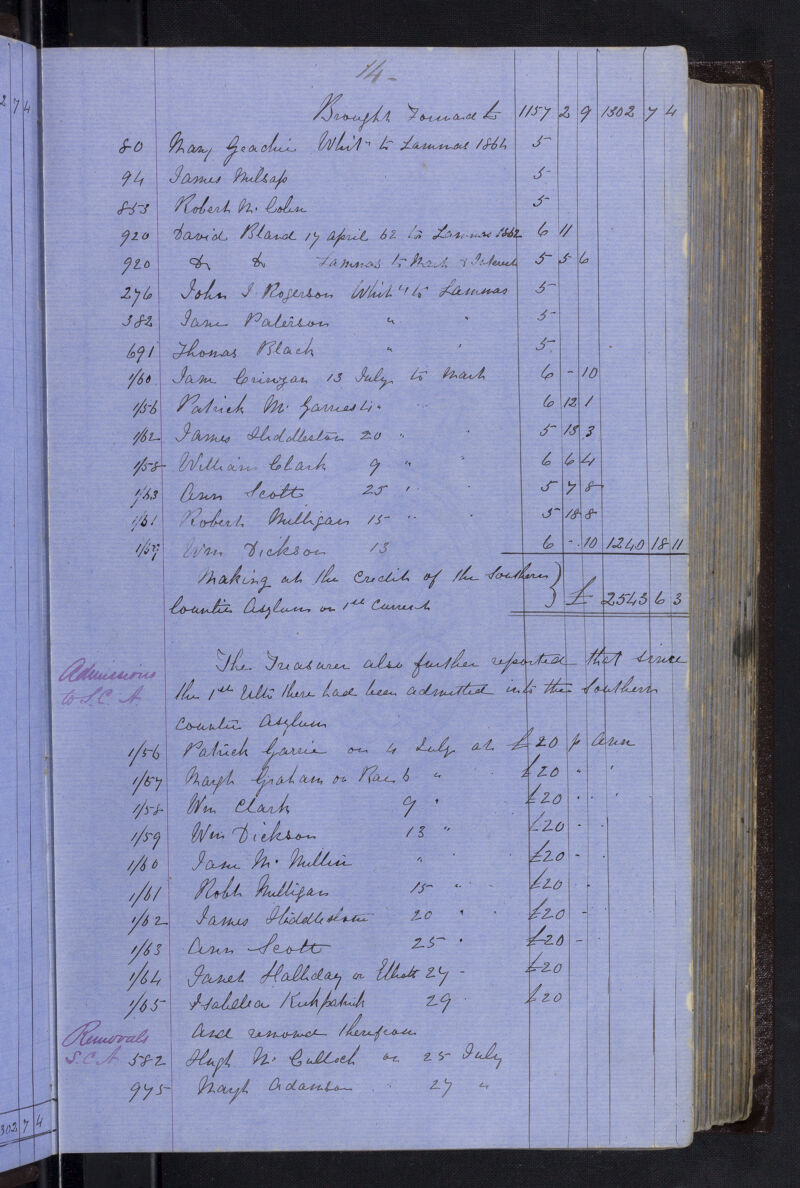 274
14-
Brought Forward £ 1157 2 9 1302 7 4
80 Mary Geachie Whit" to Lammas 1864 5
94 James Milsap 5
853 Robert McColm 5
920 David Bland 17 April 62 to Lammas 1862 6 11
920 Do Do Lammas to Mart & Interest 5 5 6
276 John J. Rogerson Whit" to Lammas 5
382 Jane Paterson " " 5
691 Thomas Black " " 5
1160 Jane Crinzean 13 July to Mart 6 - 10
1156 Patrick 6 12 1
1162 James Hiddleston 20 " " 5 13 3
1158 William Clark 9 " " 6 6 4
1163 Ann Scott 25 " " 5 7 8
1161 Robert Milligan 15 " " 5 18 8
1157 Wm Dickson 13 6 - 10 1240 18 11
Making at the Credit of the Southern
Counties Asylum on 1st Current } £ 2543 6 3
The Treasurer also further reported that since
Admissions to S.C.A.
the 1st Ulto there had been admitted into the Southern
Counties Asylum
1156 Patrick Garrie on 4 July at £20 p Ann
1157 Margt Graham or Rae 6 " £20 " "
1158 Wm Clark 9 " £20 " "
1159 Wm Dickson 13 " £20 -
1160 Jane McMillin " £20 -
1161 Robt Milligan 15 " £20 -
1162 James Hiddlestone 20 " £20 -
1163 Ann Scott 25 " £20 -
1164 Janet Halliday or Elliott 27 - £20
1165 Isabella Kirkpatrick 29 £20
Removals S.C.A.
And removed therefrom
582 Hugh McCulloch on 25 July
975 Margt Adamson 27 "
302 7 4